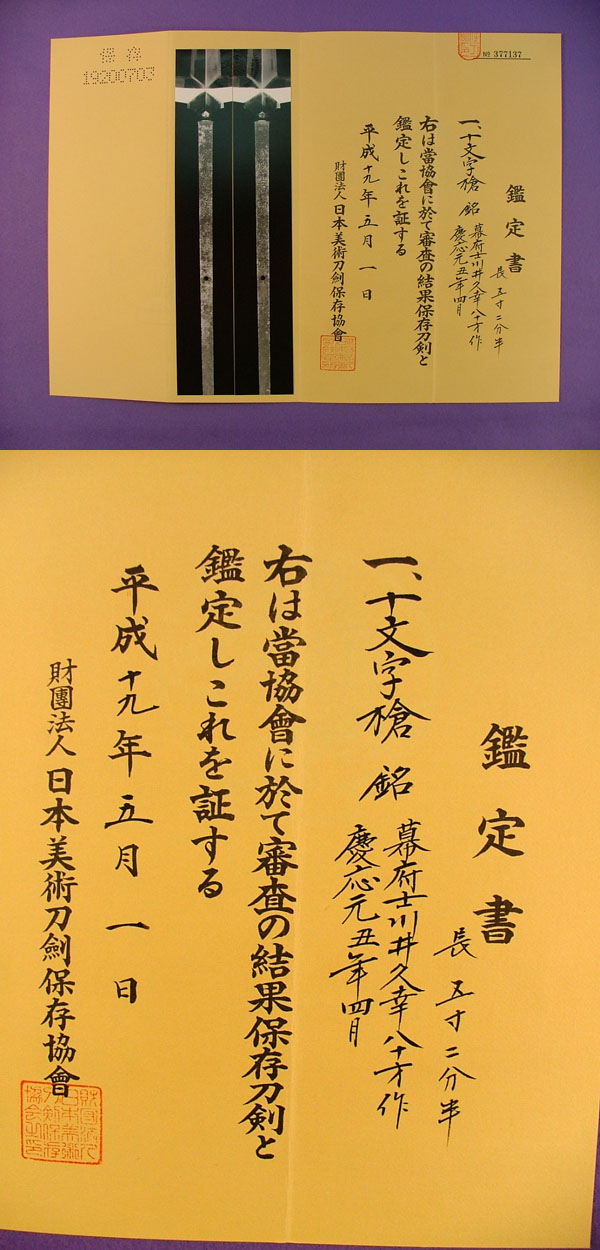 保存
19200703
No 377137
鑑定書
長 五寸二分半
一、十文字槍 銘 幕府士川井久幸八十才作
慶応元丑年四月
右は當協會に於て審査の結果保存刀剣と
鑑定しこれを証する
平成十九年五月一日
財團法人日本美術刀劍保存協會
鑑定書
長 五寸二分半
一、十文字槍 銘 幕府士川井久幸八十才作
慶応元丑年四月
右は當協會に於て審査の結果保存刀剣と
鑑定しこれを証する
平成十九年五月一日
財團法人日本美術刀劍保存協會